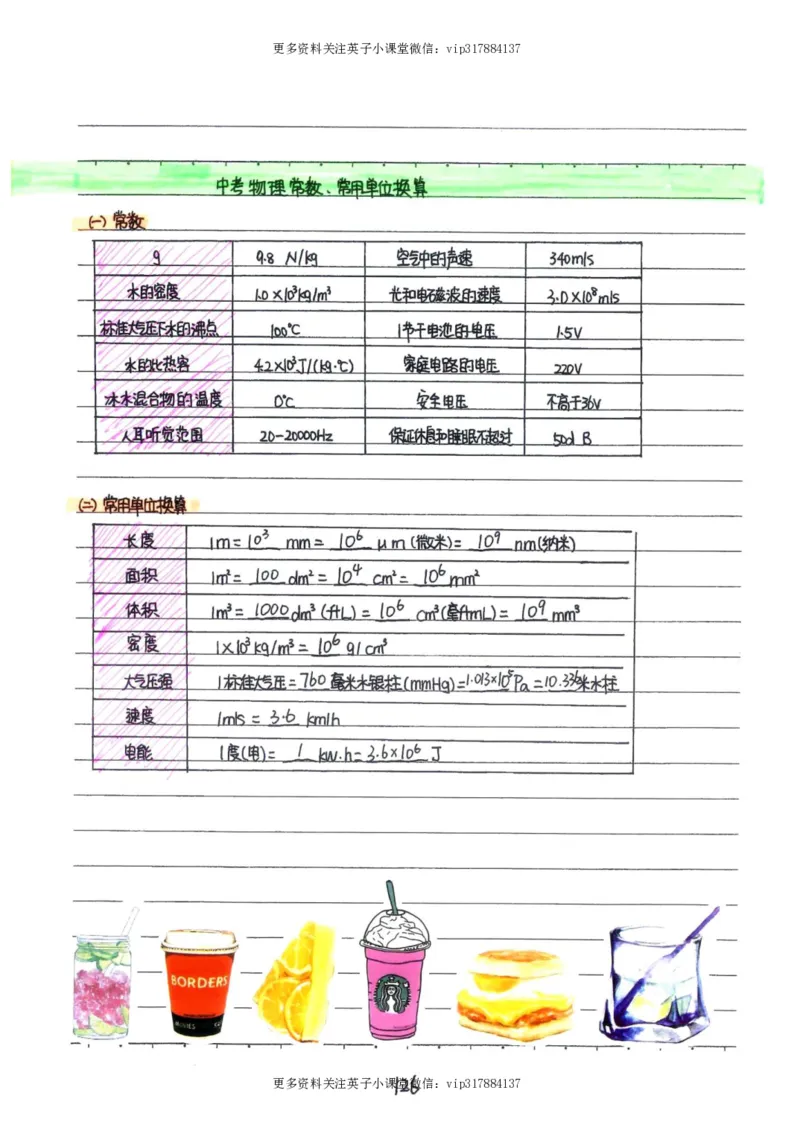 更多资料关注英子小课堂微信：vip317884137
中考物理常数、常用单位换算
(一) 常数
g 9.8 N/kg 空气中的声速 340m/s
水的密度 1.0×10³kg/m³ 光和电磁波的速度 3.0×10⁸m/s
标准大气压下水的沸点 100℃ 1节干电池的电压 1.5V
水的比热容 4.2×10³J/(kg·℃) 家庭电路的电压 220V
冰水混合物的温度 0℃ 安全电压 不高于36V
人耳听觉范围 20-20000Hz 保证休息和睡眠不超过 50dB
(二) 常用单位换算
长度 1m=10³ mm=10⁶ μm(微米)=10⁹ nm(纳米)
面积 1m²=100 dm²=10⁴ cm²=10⁶mm²
体积 1m³=1000dm³(升L)=10⁶ cm³(毫升mL)=10⁹ mm³
密度 1×10³kg/m³=10⁶ g/cm³
大气压强 1标准大气压=760毫米水银柱(mmHg)=1.013×10⁵Pa=10.336米水柱
速度 1m/s=3.6 km/h
电能 1度(电)=1 kW·h=3.6×10⁶ J
BORDERS
更多资料关注英子小课堂微信：vip317884137
126